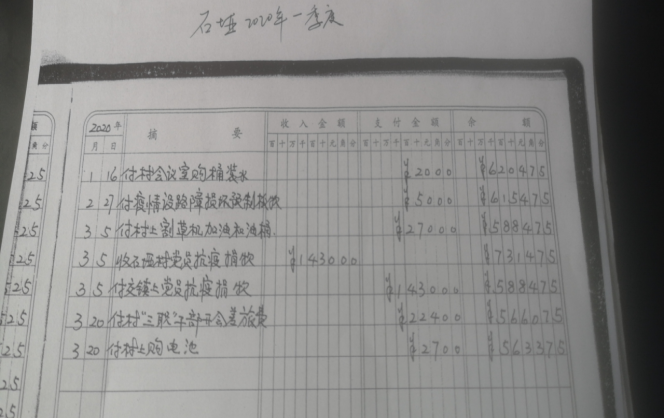 石垭2020年一季度
2020年 摘要 收入金额 支付金额 余额
月 日 百十万千百十元角分 百十万千百十元角分 百十万千百十元角分
1 16 付村会议室购桶装水 ¥2000 ¥620475
2 27 付疫情设路障损坏 ¥5000 ¥615475
3 5 付村上割草机加油和油桶 ¥27000 ¥588475
3 5 收石垭村党员抗疫捐款 ¥143000 ¥731475
3 5 付交镇上党员抗疫捐款 ¥143000 ¥588475
3 20 付村"三职"干部开会差旅费 ¥22400 ¥566075
3 20 付村上购电池 ¥2700 ¥563375